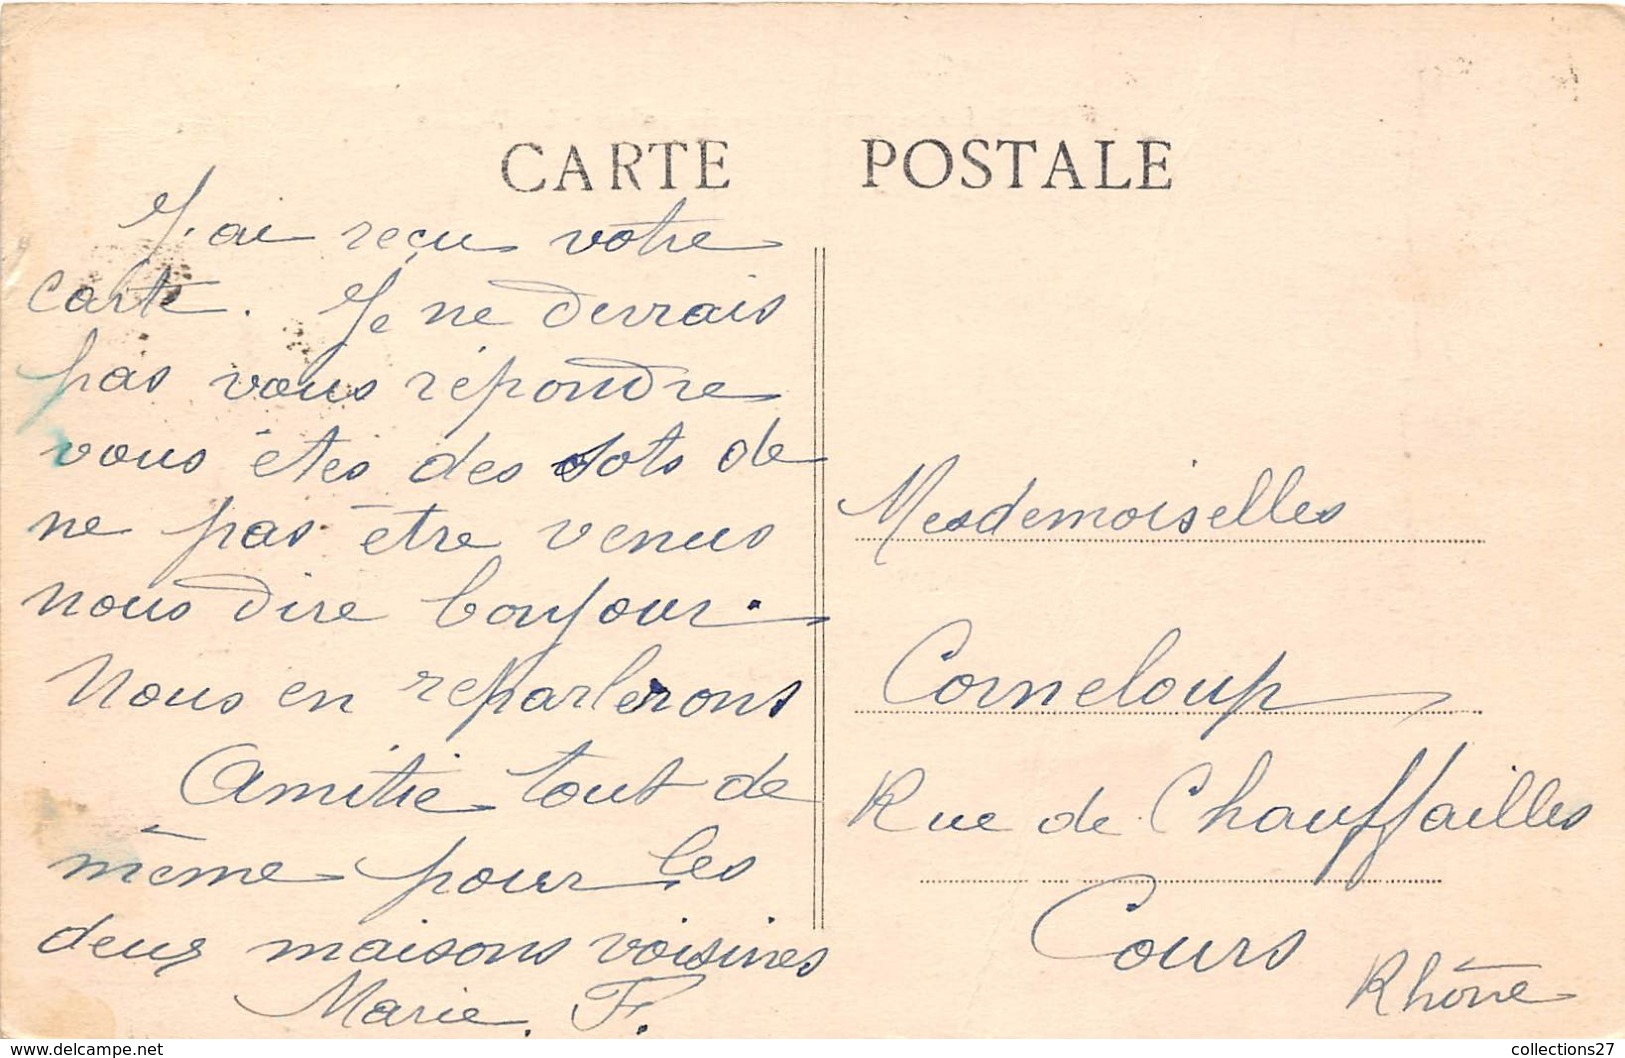 CARTE POSTALE
J'ai reçu votre
carte. Je ne devrais
pas vous répondre
vous êtes des sots de
ne pas être venus
nous dire bonjour.
Nous en reparlerons
Amitié tout de
même pour les
deux maisons voisines
Marie. F.
Mesdemoiselles
Corneloup
Rue de Chauffailles
Cours
Rhône
www.delcampe.net
collections27